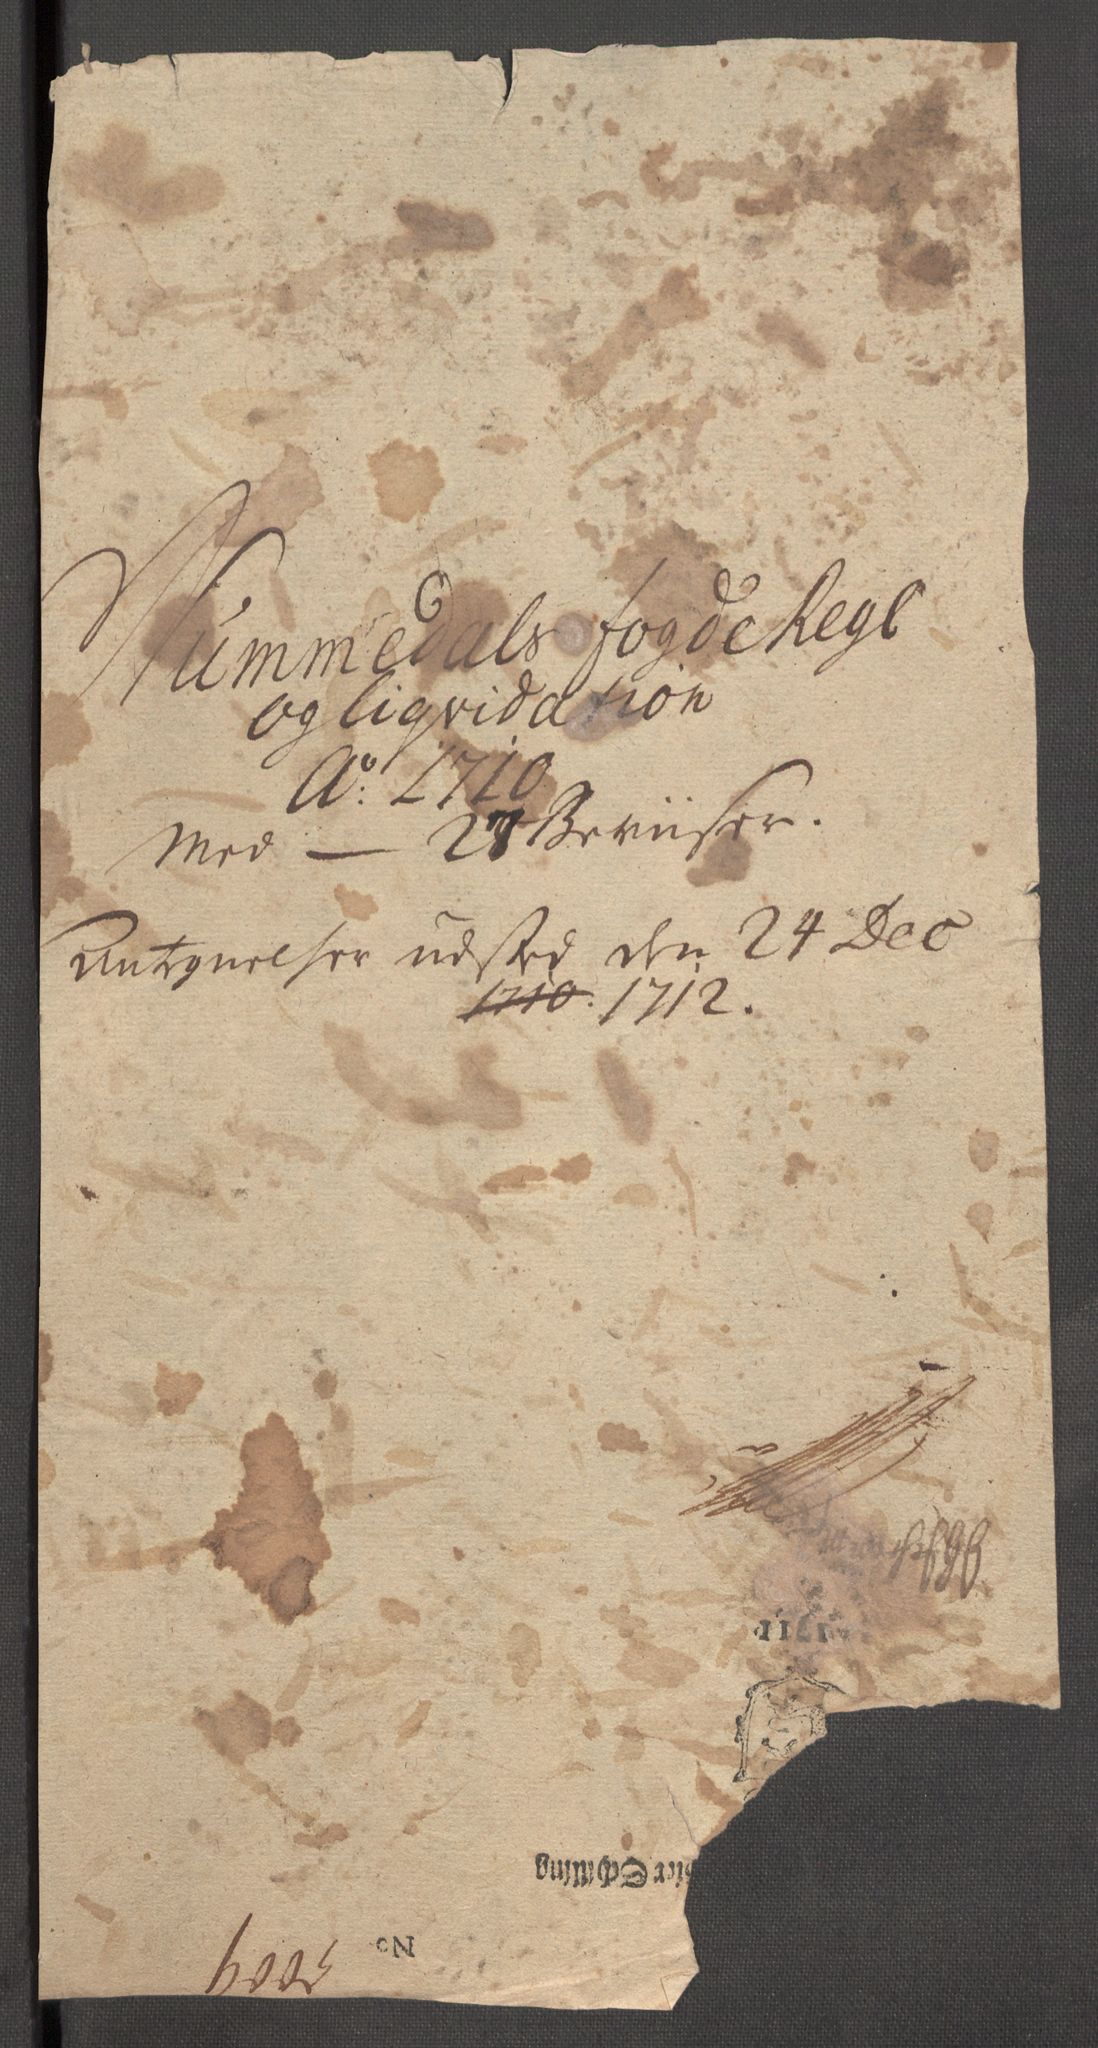 Nummedals fogde Regl
og liqvidation
Ao: 1710
Med — 27 Beviiser.
Antegnelser udsted den 24 Dec
1710. 1712.
1711
Schilling
No